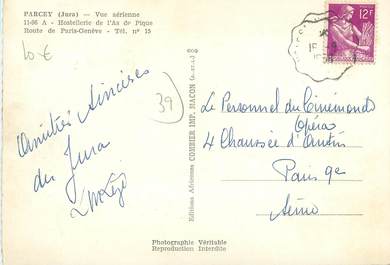 PARCEY (Jura) — Vue aérienne
11-06 A - Hostellerie de l'As de Pique
Route de Paris-Genève - Tél. n° 15
10 €
39
Amitiés sincères
du Jura
Editions Aériennes COMBIER IMP. MACON (S.-et-L.)
12F
Le Personnel du Cinémonde
Opéra
4 Chaussée d'Antin
Paris 9e
Seine
Photographie Véritable
Reproduction Interdite